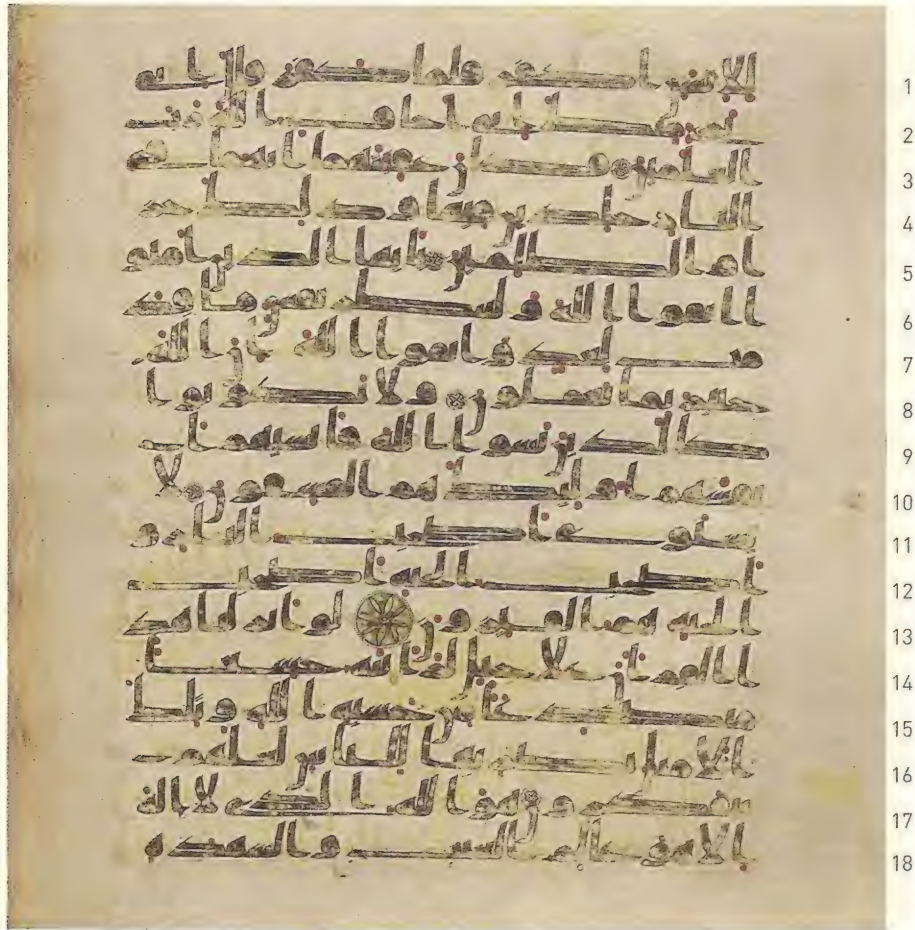 1 للانسن اكفر فلما كفر قال اني
2 بري منك اني اخاف الله رب
3 العلمين فكان عقبتهما انهما في
4 النار خلدين فيها وذلك جز
5 وا الظلمين يايها الذين امنو
6 ا اتقوا الله ولتنظر نفس ما قد
7 مت لغد واتقوا الله ان الله
8 خبير بما تعملون ولا تكونوا
9 كالذين نسوا الله فانسيهم ا
10 نفسهم اوليك هم الفسقون لا
11 يستوي اصحب النار و
12 اصحب الجنة اصحب
13 الجنة هم الفايزون لو انزلنا هذ
14 ا القران على جبل لرايته خشعا
15 متصدعا من خشية الله وتلك
16 الامثل نضربها للناس لعلهم
17 يتفكرون هو الله الذي لا اله
18 الا هو علم الغيب والشهدة